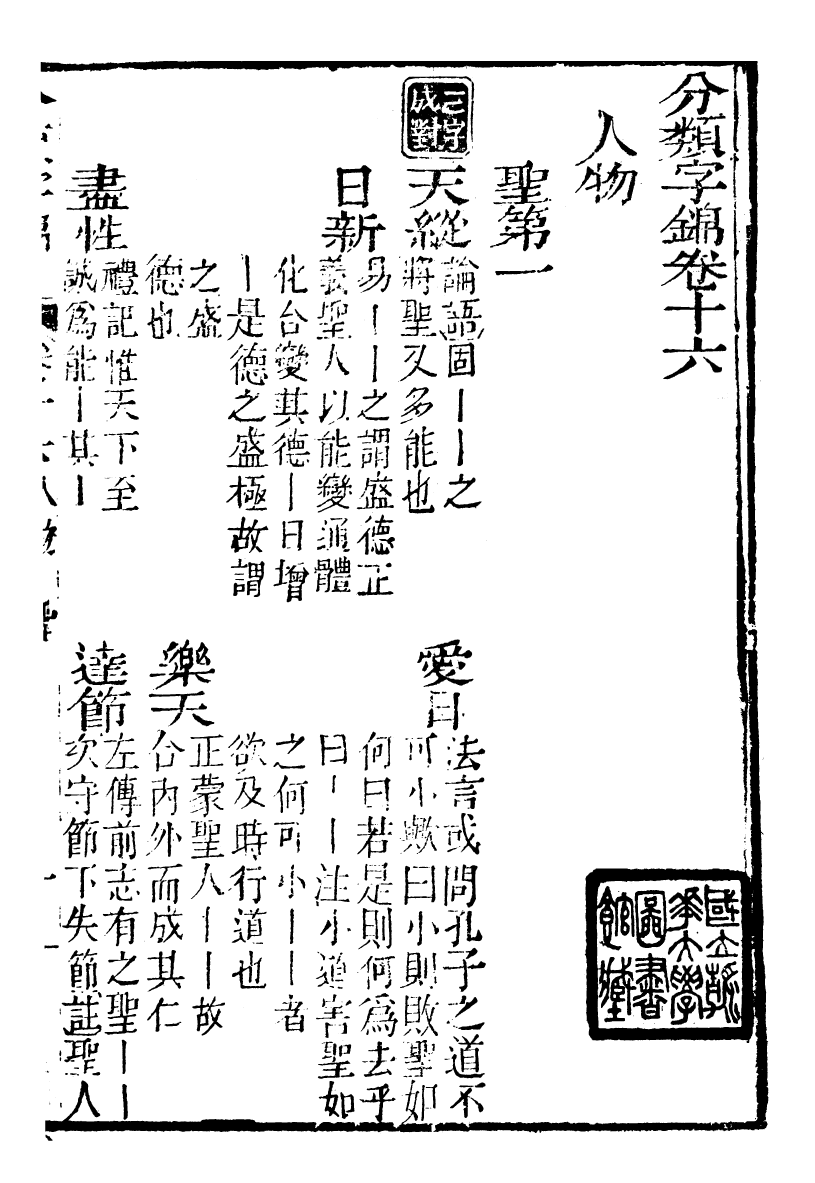 分類字錦卷十六
人物
聖第一
二字成對
天縱
論語固丨丨之
將聖又多能也
愛日
法言或問孔子之道不
可小歟曰小則敗聖如
何曰若是則何爲去乎
曰丨丨注小道害聖如
之何可小丨丨者
欲及時行道也
日新
易丨丨之謂盛德正
義聖人以能變通體
化合變其德丨日增
丨是德之盛極故謂
之盛
德也
樂天
正蒙聖人丨丨故
合內外而成其仁
盡性
禮記惟天下至
誠爲能丨其丨
達節
左傳前志有之聖丨丨
次守節下失節註聖人
國立
華大學
圖書
館藏